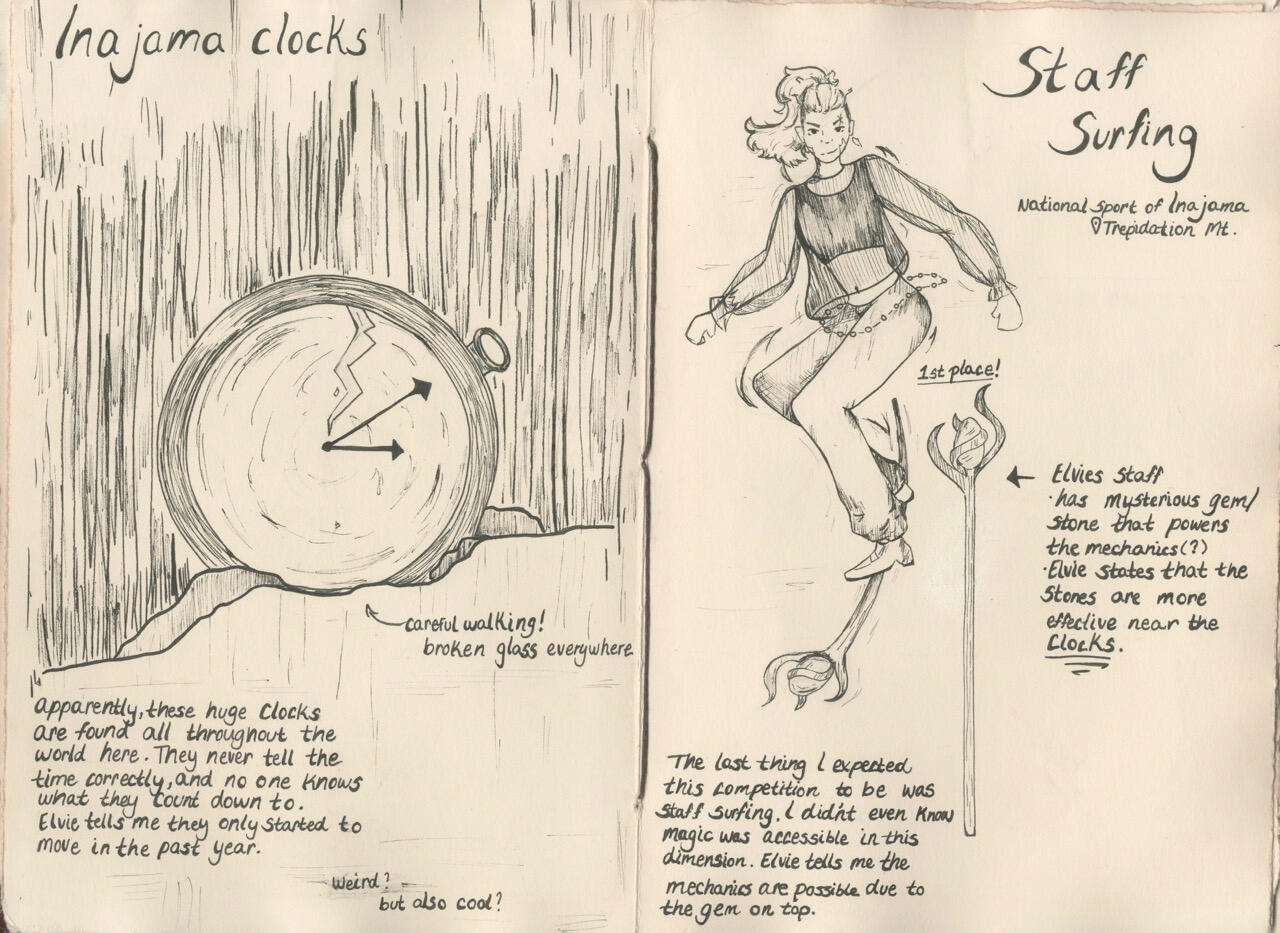 Inajama clocks
careful walking!
broken glass everywhere
apparently, these huge clocks
are found all throughout the
world here. They never tell the
time correctly, and no one knows
what they count down to.
Elvie tells me they only started to
move in the past year.
weird?
but also cool?
Staff
Surfing
National sport of Inajama
Trepidation Mt.
1st place!
Elvies staff
·has mysterious gem/
stone that powers
the mechanics(?)
·Elvie states that the
stones are more
effective near the
Clocks.
The last thing I expected
this competition to be was
staff surfing. I didn't even know
magic was accessible in this
dimension. Elvie tells me the
mechanics are possible due to
the gem on top.